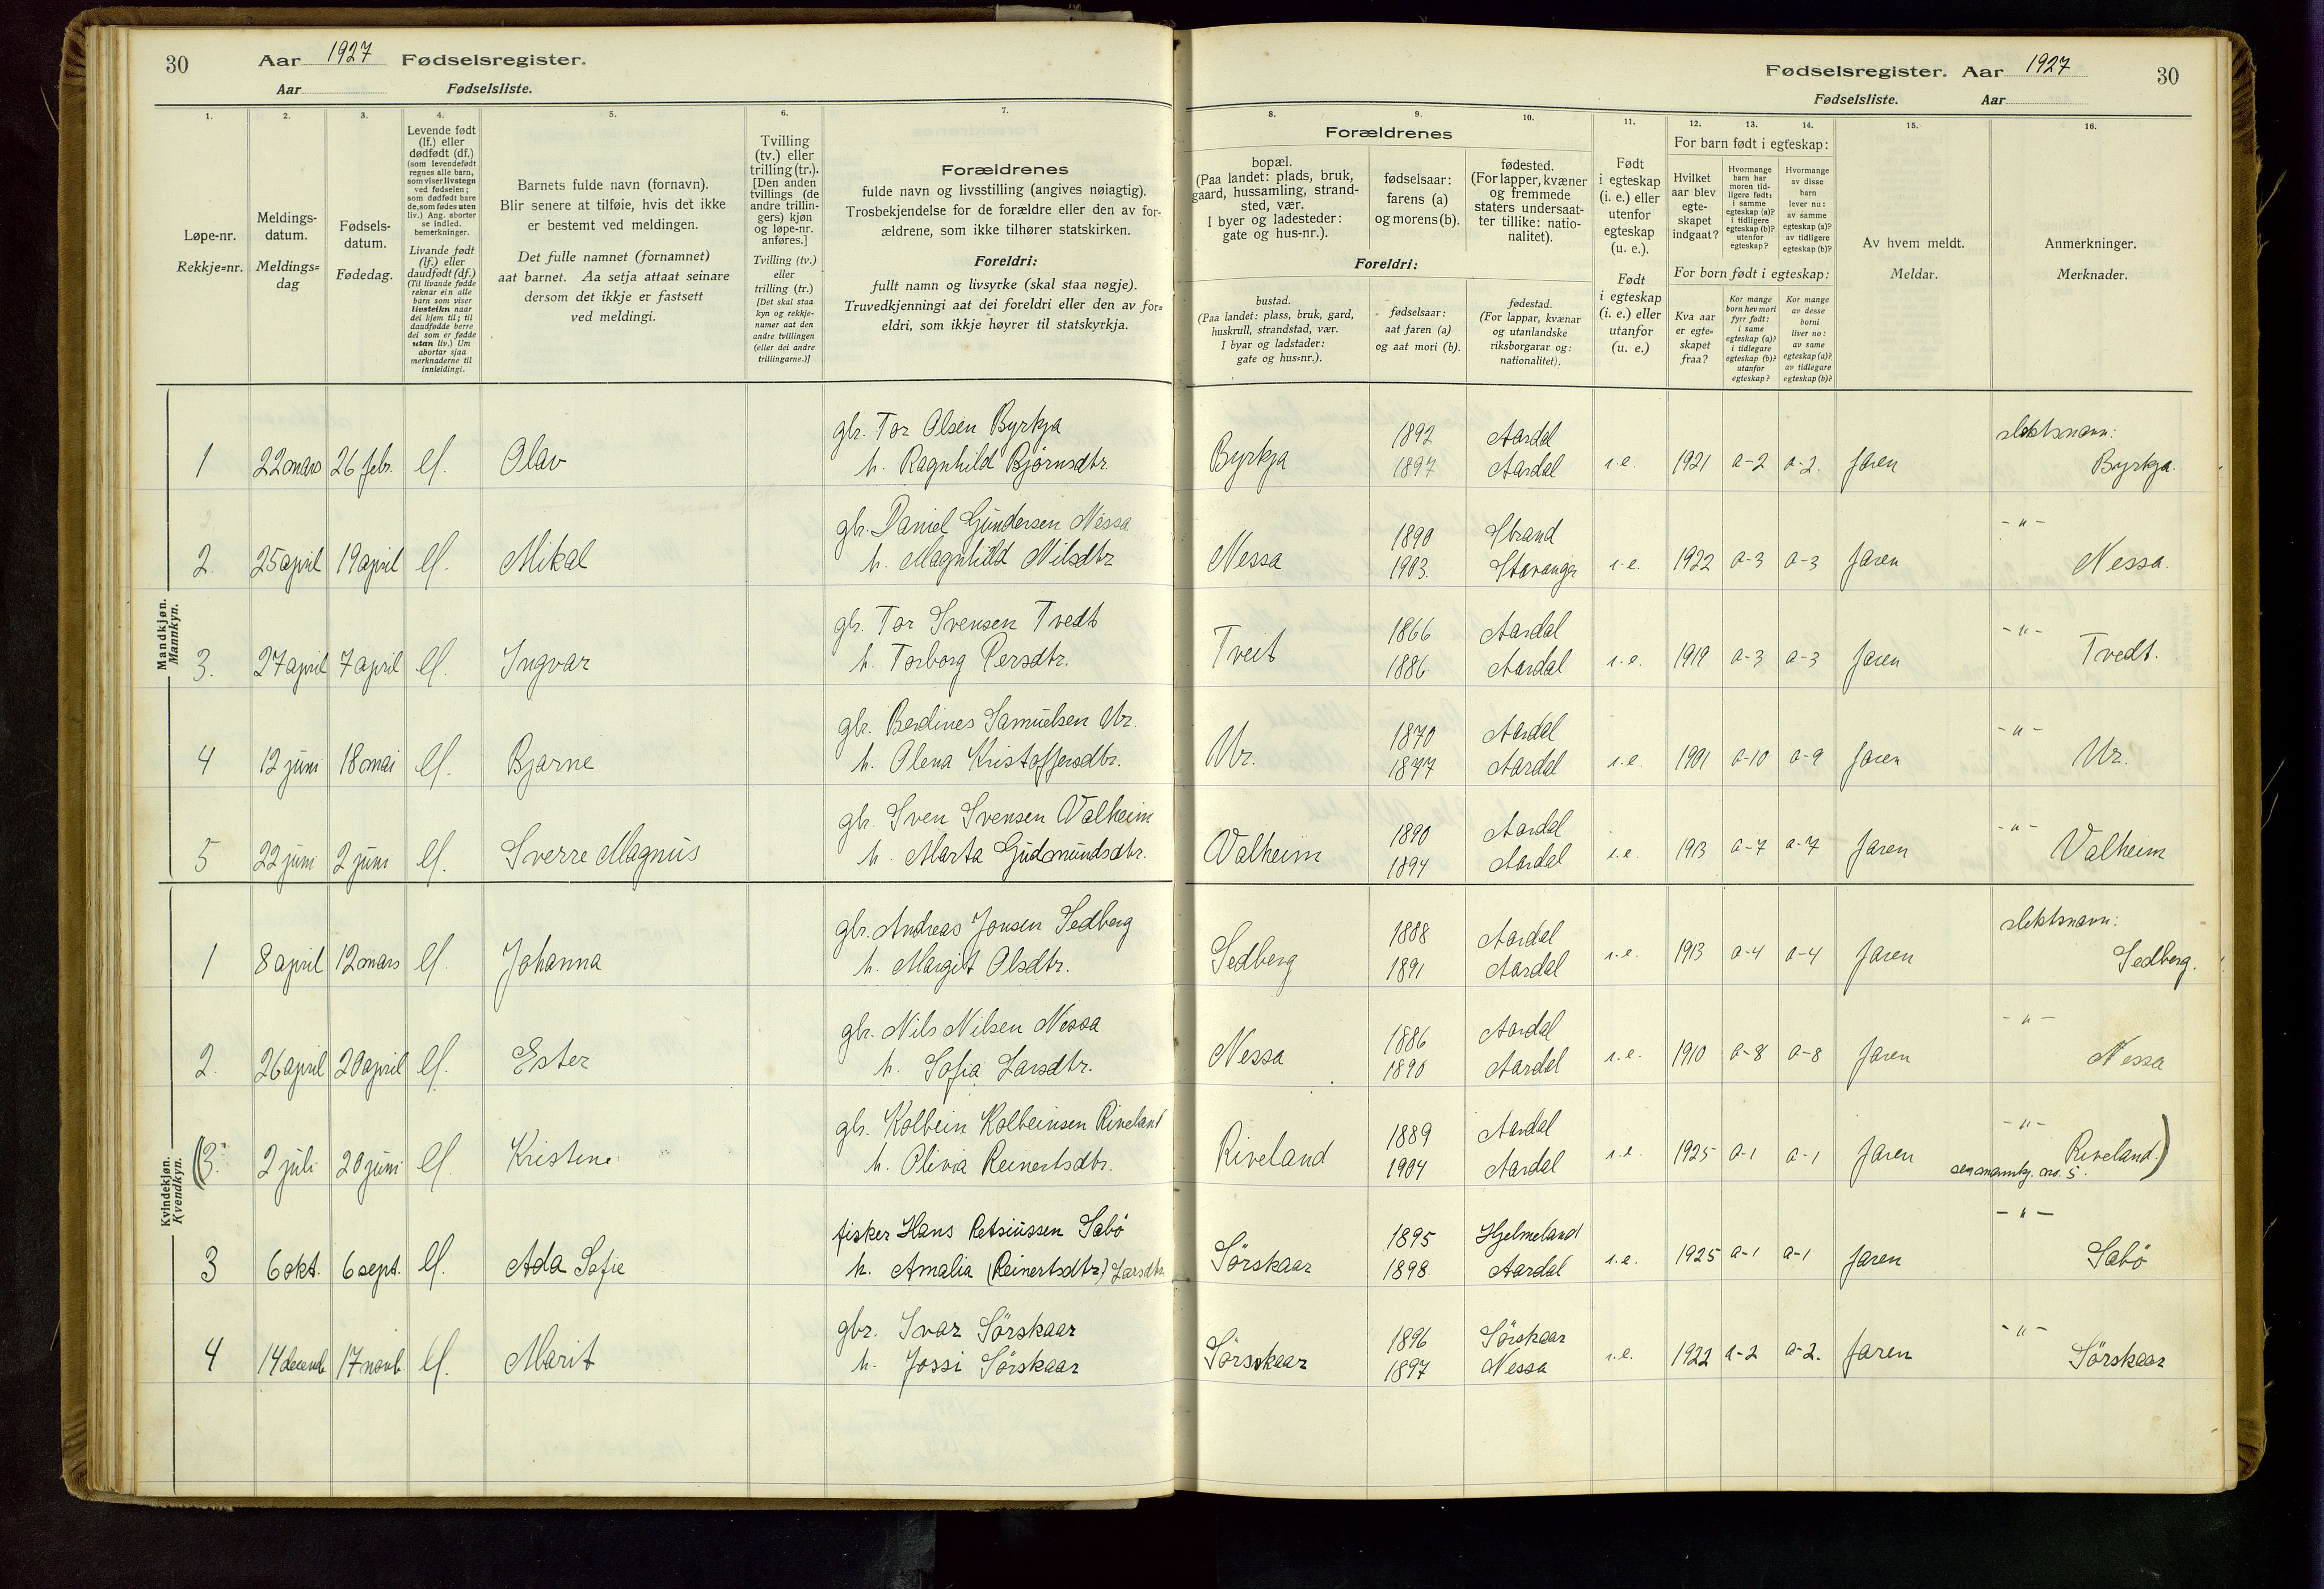 30 Aar 1927 Fødselsregister.
Aar Fødselsliste.
Fødselsregister. Aar 1927 30
Fødselsliste. Aar
1. 2. 3. 4. 5. 6. 7.
Løpe-nr.
Rekkje=nr.
Meldings-
datum.
Meldings=
dag
Fødsels-
datum.
Fødedag.
Levende født
(lf.) eller
dødfødt (df.)
(som levendefødt
regnes alle barn,
som viser livstegn
ved fødselen;
som dødfødt bare
de, som fødes uten
liv.) Ang. aborter
se indled.
bemerkninger.
Livande født
(lf.) eller
daudfødt (df.)
(Til livande fødde
reknar ein alle
barn som viser
livsteikn naar
dei kjem til; til
daudfødde berre
dei som er fødde
utan liv.) Um
abortar sjaa
merknaderne til
innleidingi.
Barnets fulde navn (fornavn).
Blir senere at tilføie, hvis det ikke
er bestemt ved meldingen.
Det fulle namnet (fornamnet)
aat barnet. Aa setja attaat seinare
dersom det ikkje er fastsett
ved meldingi.
Tvilling
(tv.) eller
trilling (tr.).
[Den anden
tvillings (de
andre trillin-
gers) kjøn
og løpe-nr.
anføres.]
Tvilling (tv.)
eller
trilling (tr.)
[Det skal staa
kyn og rekkje-
numer aat den
andre tvillingen
(eller dei andre
trillingarne.)]
Forældrenes
fulde navn og livsstilling (angives nøiagtig).
Trosbekjendelse for de forældre eller den av for-
ældrene, som ikke tilhører statskirken.
Foreldri:
fullt namn og livsyrke (skal staa nøgje).
Truvedkjenningi aat dei foreldri eller den av for=
eldri, som ikkje høyrer til statskyrkja.
8. 9. 10. 11. 12. 13. 14. 15. 16.
Forældrenes
bopæl.
(Paa landet: plads, bruk,
gaard, hussamling, strand-
sted, vær.
I byer og ladesteder:
gate og hus-nr.).
fødselsaar:
farens (a)
og morens (b).
fødested.
(For lapper, kvæner
og fremmede
staters undersaat-
ter tillike: natio-
nalitet).
Foreldri:
bustad.
(Paa landet: plass, bruk, gard,
huskrull, strandstad, vær.
I byar og ladstader:
gate og hus=nr.).
fødselsaar:
aat faren (a)
og aat mori (b).
fødestad.
(For lappar, kvænar
og utanlandske
riksborgarar og:
nationalitet).
Født
i egteskap
(i. e.) eller
utenfor
egteskap
(u. e.).
Født
i egteskap
(i. e.) eller
utanfor
(u. e.)
For barn født i egteskap:
Hvilket
aar blev
egte-
skapet
indgaat?
Hvormange
barn har
moren tid-
ligere født:
i samme
egteskap (a)?
i tidligere
egteskap (b)?
utenfor
egteskap?
Hvormange
av disse
barn
lever nu:
av samme
egteskap (a)?
av tidligere
egteskap (b)?
For born født i egteskap:
Kva aar
er egte=
skapet
fraa?
Kor mange
born hev mori
fyrr født:
i same
egteskap (a)?
i tidlegare
egteskap (b)?
utanfor
egteskap?
Kor mange
av desse
borni
liver no:
av same
egteskap (a)?
av tidlegare
egteskap (b)?
Av hvem meldt.
Meldar.
Anmerkninger.
Merknader.
Mandkjøn.
Mannkyn.
gbr. Tor Olsen Byrkja 1892 Aardal slektsnavn:
1 22 mars 26 febr. lf. Olav h. Ragnhild Bjørnsdtr. Byrkja 1897 Aardal i.e. 1921 a-2 a-2. faren Byrkja.
gbr. Daniel Gundersen Nessa 1890 Strand -"-
2. 25 april 19 april lf. Mikal h. Magnhild Nilsdtr Nessa 1903. Stavanger i.e. 1922 a-3 a-3 faren Nessa.
gbr. Tor Svensen Tvedt 1866 Aardal -"-
3. 27 april 7 april lf. Ingvar h. Torborg Persdtr. Tveit 1886 Aardal i.e. 1919 a-3 a-3 faren Tvedt.
gbr. Berdines Samuelsen Ur. 1870 Aardal -"-
4 12 juni 18 mai lf. Bjarne h. Olena Kristoffersdtr. Ur. 1877 Aardal i.e. 1901 a-10 a-9 faren Ur.
gbr. Sven Svensen Valheim 1890 Aardal -"-
5 22 juni 2 juni lf. Sverre Magnus h. Marta Gudmundsdtr. Valheim 1894 Aardal i.e. 1913 a-7 a-7 faren Valheim
Kvindekjøn.
Kvendkyn.
gbr. Andreas Jonsen Sedberg 1888 Aardal slektsnavn:
1 8 april 12 mars lf. Johanna h. Margit Olsdtr. Sedberg 1891 Aardal i.e. 1913 a-4 a-4 faren Sedberg.
gbr. Nils Nilsen Nessa 1886 Aardal -"-
2. 26 april 20 april lf. Ester h. Sofia Larsdtr. Nessa 1890 Aardal i.e. 1910 a-8 a-8 faren Nessa
gbr. Kolbein Kolbeinsen Riveland 1889 Aardal -"-
(3. 2 juli 20 juni lf. Kristine h. Olivia Reinertsdtr. Riveland 1904 Aardal i.e. 1925 a-1 a-1 faren Riveland.)
no. 5.
fisker Hans Retsiussen Sabö 1895 Hjelmeland -"-
3 6 okt. 6 sept. lf. Ada Sofie h. Amalia (Reinertsdtr) Larsdtr. Sörskaar 1898 Aardal i.e. 1925 a-1 a-1 faren Sabö
gbr. Ivar Sörskaar 1896 Sörskaar -"-
4 14 decemb 17 novb lf. Marit h. Jossi Sörskaar Sörskaar 1897 Nessa i.e. 1922 a-2 a-2. faren Sörskaar